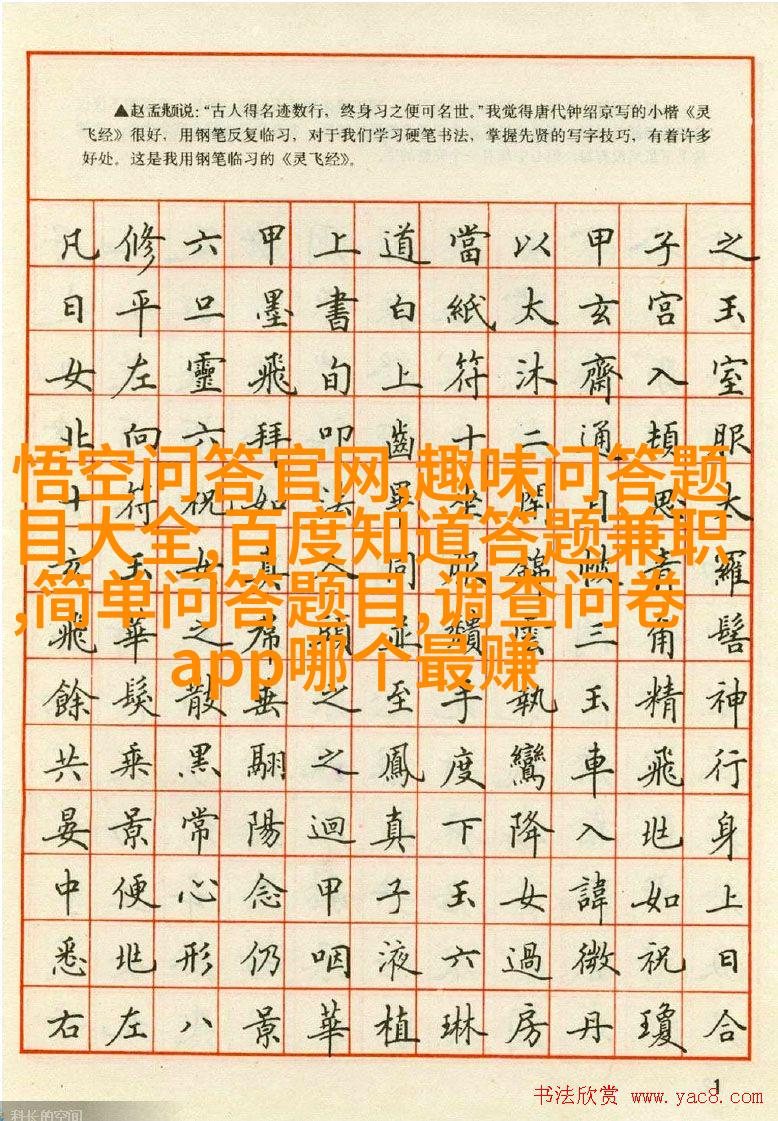 ▲赵孟頫说：“古人得名迹数行，终身习之便可名世。”我觉得唐代钟绍京写的小楷《灵
飞经》很好，用钢笔反复临习，对于我们学习硬笔书法，掌握先贤的写字技巧，有着许多
好处。这是我用钢笔临习的《灵飞经》。
凡修六甲上道當以甲子之
日平旦墨書白紙太玄宮玉
女左靈飛旬上符沐齋入室
北向六拜叩齒十二通頓服
十符祝如法畢坐閉目思太
玄玉女真人同服錦帔青羅
飛華之帬頭並頹雲三角髻
餘髮散垂之至手執玉精神
共乘黑翮之鳳度鸞車飛行
晏景常陽迴真下降入兆身
中便心念甲子玉女諱如上
悉兆形仍咽液六過微祝日
右左八景華植琳房丹瓊合
悟空问答官网,趣味问答题
目大全,百度知道答题兼职
,简单问答题目,调查问卷
app哪个最赚
1
书法欣赏 www.yac8.com
科长的空间